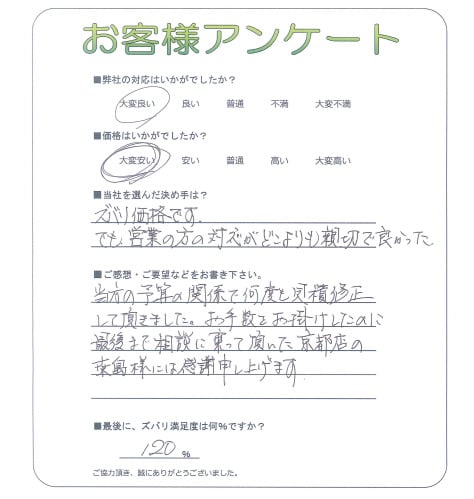 お客様アンケート
■弊社の対応はいかがでしたか？
大変良い 良い 普通 不満 大変不満
■価格はいかがでしたか？
大変安い 安い 普通 高い 大変高い
■当社を選んだ決め手は？
ズバリ価格です。
でも、営業の方の対応がどこよりも親切で良かった
■ご感想・ご要望などをお書き下さい。
当方の予算の関係で何度も見積修正
して頂きました。お手数をお掛けしたのに
最後まで相談に乗って頂いた京都店の
島様には感謝申し上げます
■最後に、ズバリ満足度は何%ですか？
120 %
ご協力頂き、誠にありがとうございました。